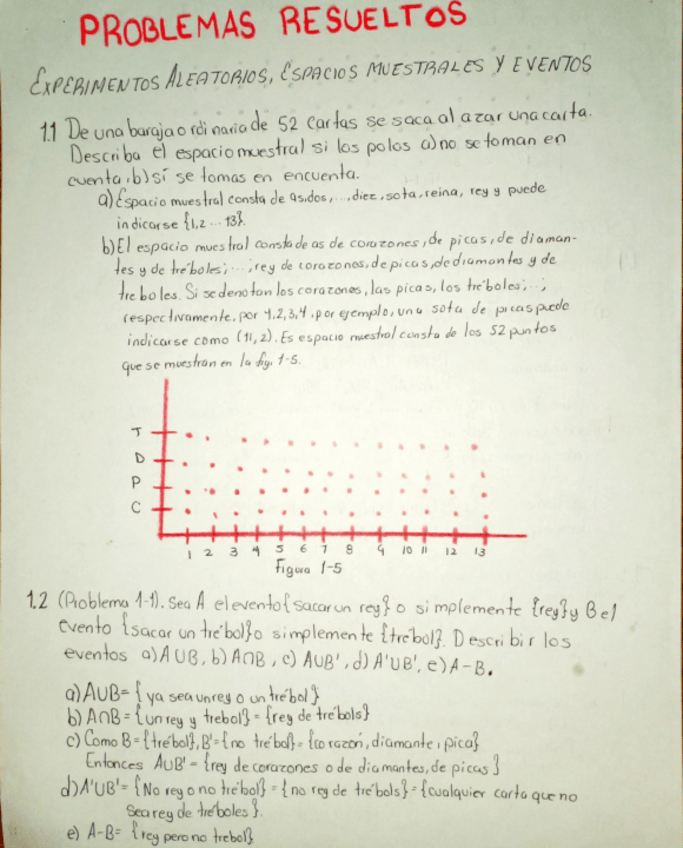 PROBLEMAS RESUELTOS
EXPERIMENTOS ALEATORIOS, ESPACIOS MUESTRALES Y EVENTOS
1.1 De una baraja ordinaria de 52 cartas se saca al azar una carta.
Describa el espacio muestral si los palos a) no se toman en
cuenta, b) sí se tomas en encuenta.
a) Espacio muestral consta de as, dos, ..., diez, sota, reina, rey y puede
indicarse {1,2 ... 13}.
b) El espacio muestral consta de as de corazones, de picas, de diaman-
tes y de tréboles; ..., rey de corazones, de picas, de diamantes y de
treboles. Si se denotan los corazones, las picas, los tréboles; ..;
respectivamente, por 1,2,3,4, por ejemplo, una sota de picas puede
indicarse como (11,2). Es espacio muestral consta de los 52 puntos
que se muestran en la fig. 1-5.
T
D
P
C
1 2 3 4 5 6 7 8 9 10 11 12 13
Figura 1-5
1.2 (Problema 1-1). Sea A el evento {sacar un rey} o simplemente {rey} y B el
evento {sacar un trébol} o simplemente {trébol}. Describir los
eventos a) A∪B, b) A∩B, c) A∪B', d) A'∪B', e) A-B.
a) A∪B= {ya sea un rey o un trébol}
b) A∩B = {un rey y trebol} = {rey de trébols}
c) Como B = {trébol}, B'= {no trébol} = {corazón, diamante, pica}
Entonces A∪B' = {rey de corazones o de diamantes, de picas}
d) A'∪B' = {No rey o no trébol} = {no rey de trébols} = {cualquier carta que no
Sea rey de tréboles}.
e) A-B= {rey pero no trebol}